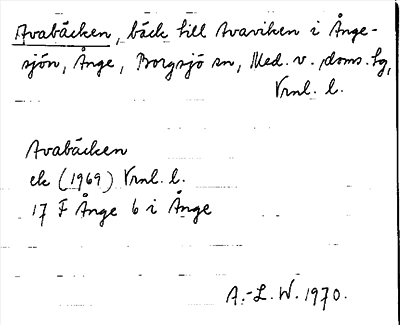 Avabäcken, bäck till Avaviken i Ånge-
sjön, Ånge, Borgsjö sn, Med. v. doms. tg,
Vrnl. l.
Avabäcken
ek (1969) Vrnl. l.
17 F Ånge 6 i Ånge
A.-L. W. 1970.